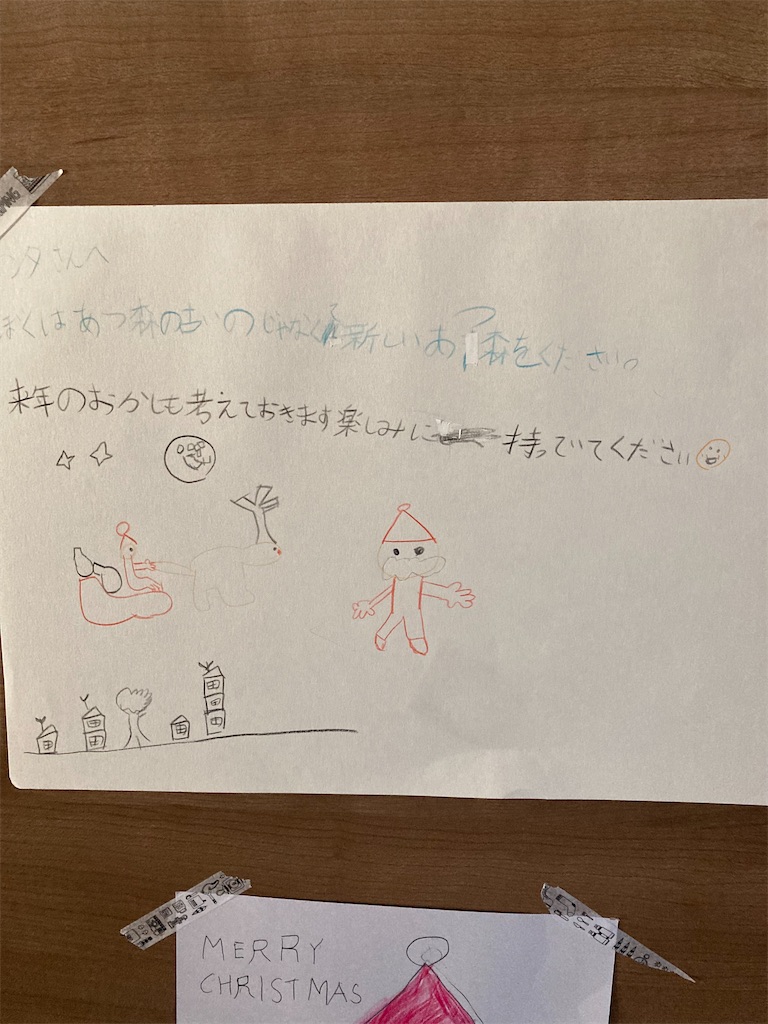 ンタさんへ
ぼくはあつ森の古いのじゃなく新しいあつ森をください。
来年のおかしも考えておきます楽しみに持っていてください
MERRY
CHRISTMAS